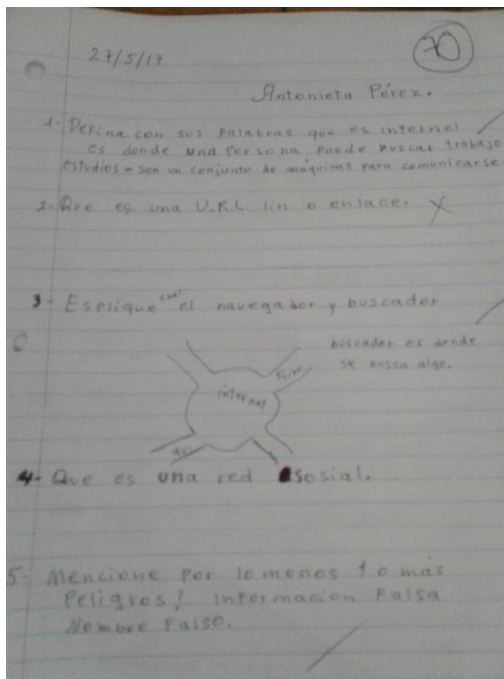 27/5/17
70
Antonieta Pérez.
1- Defina con sus palabras que es internet
es donde una Persona puede buscar trabajo
estudios = son un conjunto de máquinas para comunicarse.
2- Que es una U.R.L. lin o enlace. X
3- Esplique cual el navegador y buscador
buscador es donde
se busca algo.
internet
4- Que es una red sosial.
5- Mencione Por lo menos 1 o más
Peligros! Informacion Falsa
Nombre Falso.